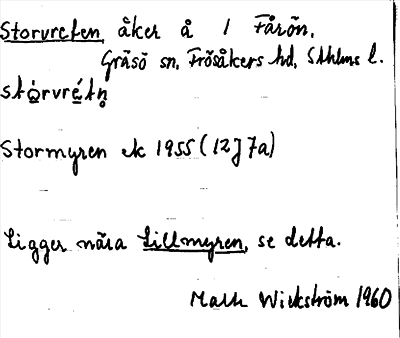 Storvreten åker å 1 Fårön,
Gräsö sn, Frösåkers hd, Sthlms l.
Stormyren ek 1955 (12J 7a)
Ligger nära Lillmyren, se detta.
Wickström 1960